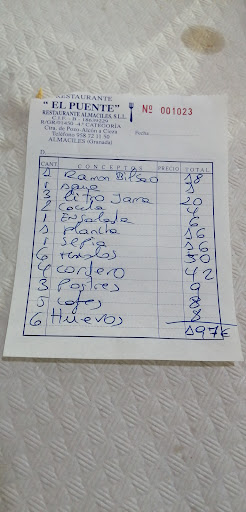 RESTAURANTE
" EL PUENTE"
RESTAURANTE ALMACILES, S.L.L.
C.I.F. B - 18639229
4.ª CATEGORÍA
Ctra. de Pozo Alcón a Cieza
Teléfono 958 72 11 50
ALMACILES (Granada)
Nº 001023
Fecha
D.
CANT. CONCEPTOS PRECIO TOTAL
1 Ramon Bilbao 18
1 agua
3 litro Jarra 20
2 CocaCola 4
1 Ensalada 6
1 Plancha 16
1 Sepia 16
6 50
4 Cordero 42
3 Postres 9
5 cafes 8
6 Huevos 8
197€